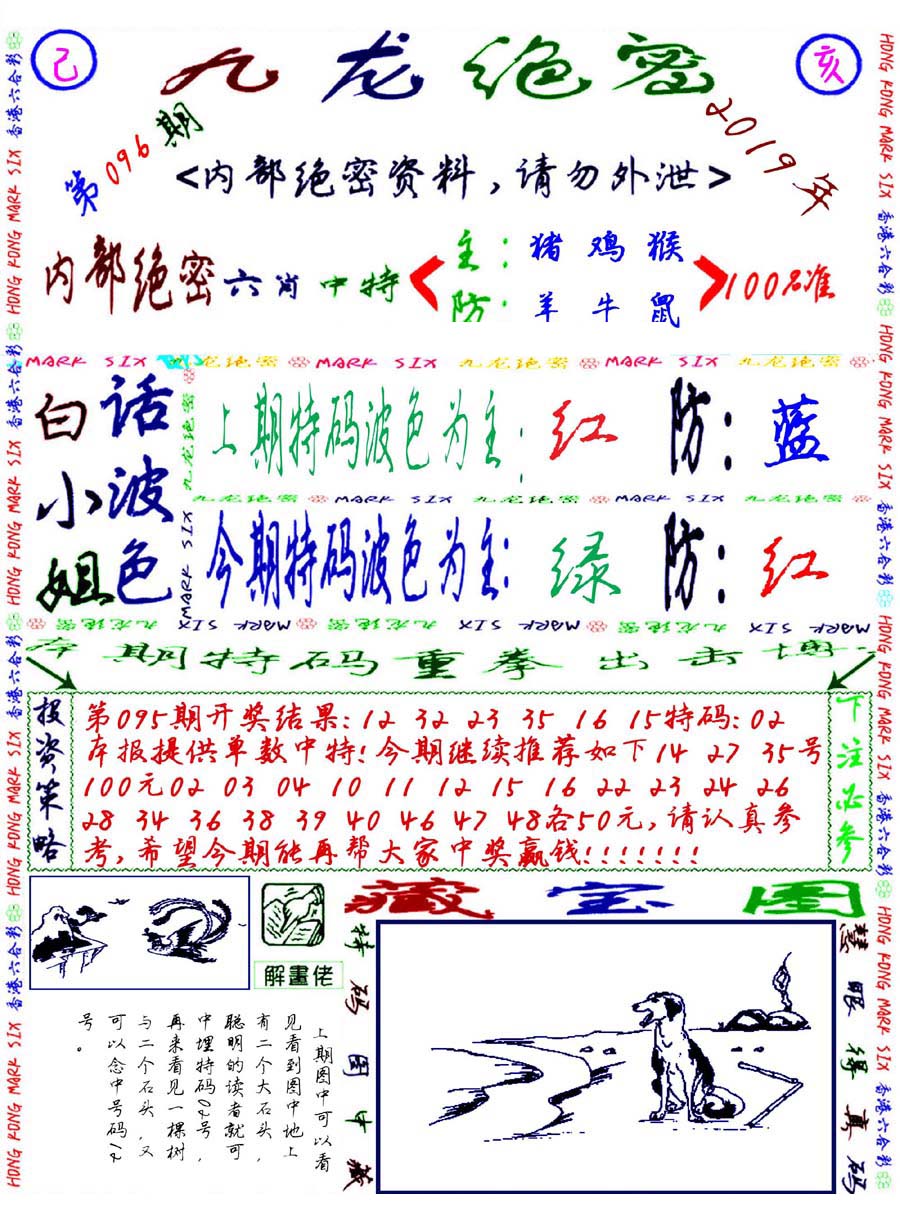 己 九龙绝密 亥
第096期
2019年
<内部绝密资料,请勿外泄>
内部绝密六肖中特
主:猪鸡猴
防:羊牛鼠
100%准
MARK SIX 九龙绝密 MARK SIX 九龙绝密 MARK SIX 九龙绝密
白话小姐
波色
上期特码波色为主:红 防:蓝
九龙绝密 MARK SIX 九龙绝密 MARK SIX 九龙绝密
今期特码波色为主:绿 防:红
九龙绝密
MARK SIX
MARK SIX 九龙绝密 MARK SIX 九龙绝密 MARK SIX 九龙绝密
本期特码重拳出击博
投资策略
第095期开奖结果:12 32 23 35 16 15特码:02
本报提供单数中特!今期继续推荐如下14 27 35号
100元02 03 04 10 11 12 15 16 22 23 24 26
28 34 36 38 39 40 46 47 48各50元,请认真参
考,希望今期能再帮大家中奖赢钱!!!!!!!
下注必参
解畫佬
藏宝图
特码图中藏
慧眼得真码
上期图中可以看
见看到图中地上
有二个大石头,
聪明的读者就可
中埋特码02号,
再来看见一棵树
与二个石头,又
可以念中号码12
号。
HONG KONG MARK SIX 香港六合彩 HONG KONG MARK SIX 香港六合彩 HONG KONG MARK SIX 香港六合彩 HONG KONG MARK SIX 香港六合彩
HONG KONG MARK SIX 香港六合彩 HONG KONG MARK SIX 香港六合彩 HONG KONG MARK SIX 香港六合彩 HONG KONG MARK SIX 香港六合彩